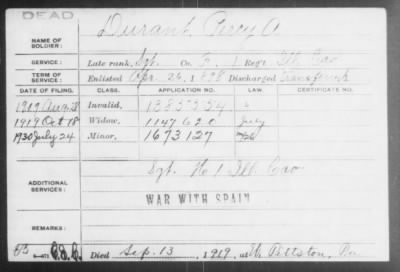 DEAD
NAME OF SOLDIER: Durant, Percy A.
SERVICE: Late rank, Sgt. Co. F, 1 Reg't Ill Cav
TERM OF SERVICE: Enlisted Apr. 26, 1898 Discharged
DATE OF FILING. CLASS. APPLICATION NO. LAW. CERTIFICATE NO.
1909 Aug 28 Invalid, 1385554
1919 Oct 18 Widow, 1147620 July
1930 July 24 Minor, 1673127
Sgt. Ill. Cav
ADDITIONAL SERVICES:
WAR WITH SPAIN
REMARKS:
Died Sep. 13, 1919, at W. Pittston, Pa